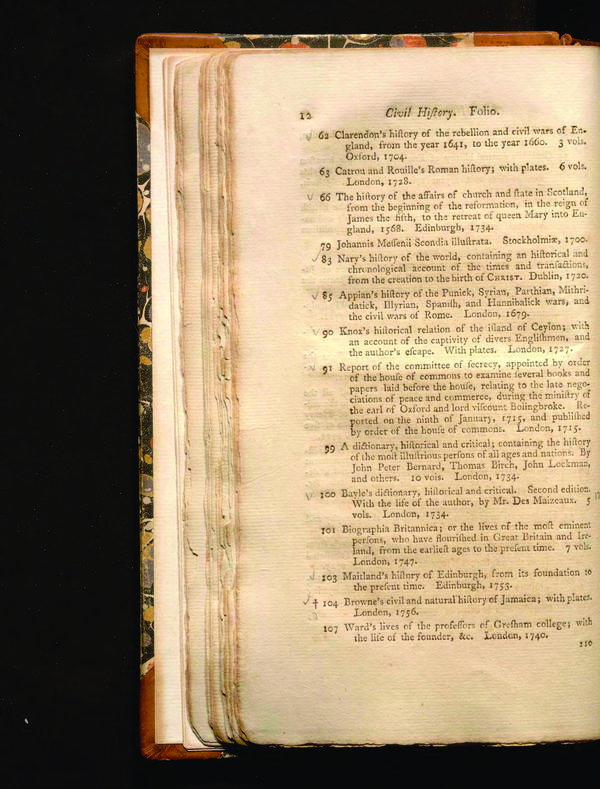 12 Civil Hiſtory. Folio.
√ 62 Clarendon's hiſtory of the rebellion and civil wars of En-
gland, from the year 1641, to the year 1660. 3 vols.
Oxford, 1704.
63 Catrou and Rouille's Roman hiſtory; with plates. 6 vols.
London, 1728.
√ 66 The hiſtory of the affairs of church and ſtate in Scotland,
from the beginning of the reformation, in the reign of
James the fifth, to the retreat of queen Mary into En-
gland, 1568. Edinburgh, 1734.
79 Johannis Meſſenii Scondia illuſtrata. Stockholmiæ, 1700.
√ 83 Nary's hiſtory of the world, containing an hiſtorical and
chronological account of the times and tranſactions,
from the creation to the birth of CHRIST. Dublin, 1720.
√ 85 Appian's hiſtory of the Punick, Syrian, Parthian, Mithri-
datick, Illyrian, Spaniſh, and Hannibalick wars, and
the civil wars of Rome. London, 1679.
√ 90 Knox's hiſtorical relation of the iſland of Ceylon; with
an account of the captivity of divers Engliſhmen, and
the author's eſcape. With plates. London, 1727.
91 Report of the committee of ſecrecy, appointed by order
of the houſe of commons to examine ſeveral books and
papers laid before the houſe, relating to the late nego-
ciations of peace and commerce, during the miniſtry of
the earl of Oxford and lord viſcount Bolingbroke. Re-
ported on the ninth of January, 1715, and publiſhed
by order of the houſe of commons. London, 1715.
99 A dictionary, hiſtorical and critical; containing the hiſtory
of the moſt illuſtrious perſons of all ages and nations. By
John Peter Bernard, Thomas Birch, John Lockman,
and others. 10 vols. London, 1734.
√ 100 Bayle's dictionary, hiſtorical and critical. Second edition.
With the life of the author, by Mr. Des Maizeaux. 5
vols. London, 1734.
101 Biographia Britannica; or the lives of the moſt eminent
perſons, who have flouriſhed in Great Britain and Ire-
land, from the earlieſt ages to the preſent time. 7 vols.
London, 1747.
√ 103 Maitland's hiſtory of Edinburgh, from its foundation to
the preſent time. Edinburgh, 1753.
√ † 104 Browne's civil and natural hiſtory of Jamaica; with plates.
London, 1756.
107 Ward's lives of the profeſſors of Greſham college; with
the life of the founder, &c. London, 1740.
110